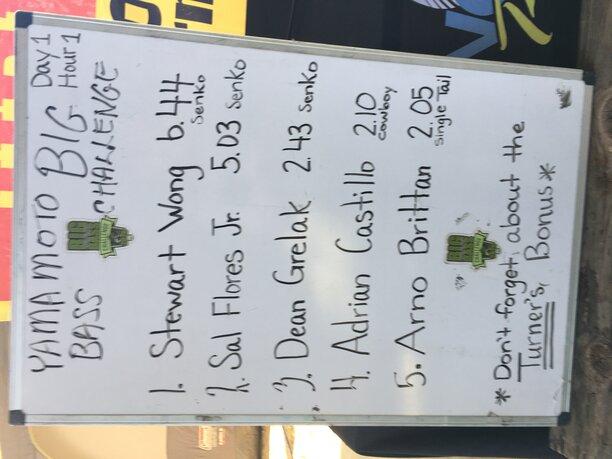 YAMAMOTO BIG Day 1
Hour 1
BASS BIG BASS CHALLENGE CHALLENGE
1. Stewart Wong 6.44
Senko
2. Sal Flores Jr. 5.03 Senko
3. Dean Grelak 2.43 Senko
4. Adrian Castillo 2.10
Cowboy
5. Arno Brittan 2.05
Single Tail
BIG
BASS
CHALLENGE
* Don't forget about the
Turner's, Bonus *